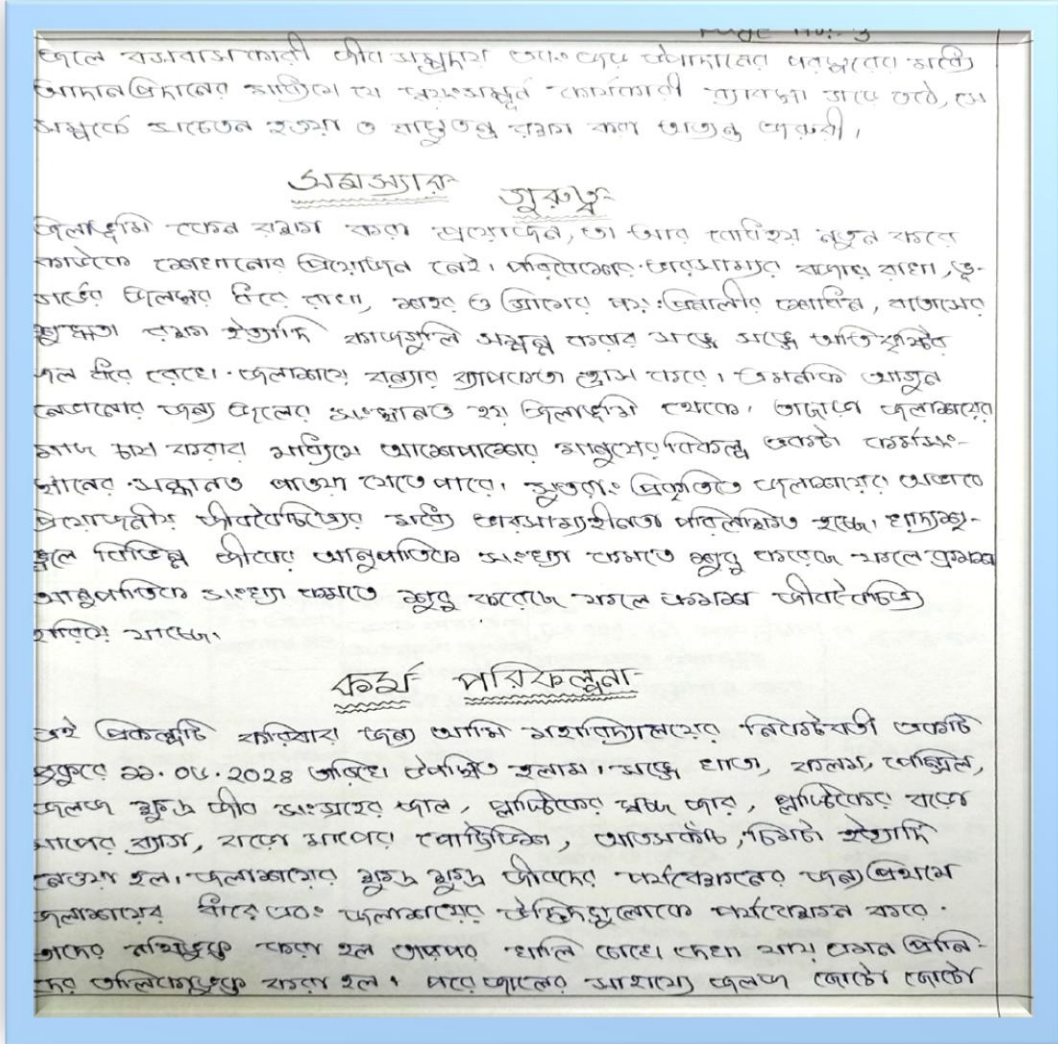 Page No: 3
জলে বসবাসকারী জীব সম্প্রদায় এবং জড় উপাদানের পরস্পরের মধ্যে
আদানপ্রদানের মাধ্যমে যে স্বয়ংসম্পূর্ণ কার্যকারী ব্যবস্থা গড়ে ওঠে, সে
সম্পর্কে সচেতন হওয়া ও বাস্তুতন্ত্র রক্ষা করা অত্যন্ত জরুরী।
সমস্যার গুরুত্ব
জলাভূমি কেন রক্ষা করা প্রয়োজন, তা আর বোধহয় নতুন করে
কাউকে শেখানোর প্রয়োজন নেই। পরিবেশের ভারসাম্যর বজায় রাখা, ভূ-
গর্ভের জলস্তর ধরে রাখা, শহর ও গ্রামের পয়ঃপ্রনালীর শোধন, বাতাসের
শুদ্ধতা রক্ষা ইত্যাদি কাজগুলি সম্পন্ন করার সঙ্গে সঙ্গে অতিবৃষ্টির
জল ধরে রেখে জলাশয়ে বন্যার ব্যাপকতা হ্রাস করে। এমনকি আগুন
নেভানোর জন্য জলের সংস্থানও হয় জলাভূমি থেকে, তাছাড়া জলাশয়ের
মাছ চাষ করার মাধ্যমে আশেপাশের মানুষের বিকল্প একটা কর্মসং-
স্থানের সন্ধানও পাওয়া যেতে পারে। সুতরাং প্রকৃতিতে জলাশয়ের অভাবে
প্রয়োজনীয় জীববৈচিত্র্যের মধ্যে ভারসাম্যহীনতা পরিলক্ষিত হচ্ছে। খাদ্যশৃ-
ঙ্খলে বিভিন্ন জীবের আনুপাতিক সংখ্যা কমতে শুরু করেছে ফলে ক্রমশ
আনুপাতিক সংখ্যা কমতে শুরু করেছে ফলে ক্রমশ জীববৈচিত্র্য
হারিয়ে যাচ্ছে।
কর্ম পরিকল্পনা
এই প্রকল্পটি করিবার জন্য আমি মহাবিদ্যালয়ের নিকটবর্তী একটি
পুকুরে ২২.০৫.২০২৪ তারিখে উপস্থিত হলাম। সঙ্গে খাতা, কলম, পেন্সিল,
জলজ ক্ষুদ্র জীব সংগ্রহের জাল, প্লাস্টিকের স্বচ্ছ জার, প্লাস্টিকের বড়ো
মাপের ব্যাগ, বড়ো মাপের পেট্রিডিশ, আতসকাঁচ, চিমটা ইত্যাদি
নেওয়া হল। জলাশয়ের ক্ষুদ্র ক্ষুদ্র জীবদের পর্যবেক্ষনের জন্য প্রথমে
জলাশয়ের ধারে এবং জলাশয়ের উদ্ভিদগুলোকে পর্যবেক্ষন করে
তাদের নথিভুক্ত করা হল তারপর খালি চোখে দেখা যায় এমন প্রানি-
দের তালিকাভুক্ত করা হল। পরে জালের সাহায্যে জলজ ছোটো ছোটো